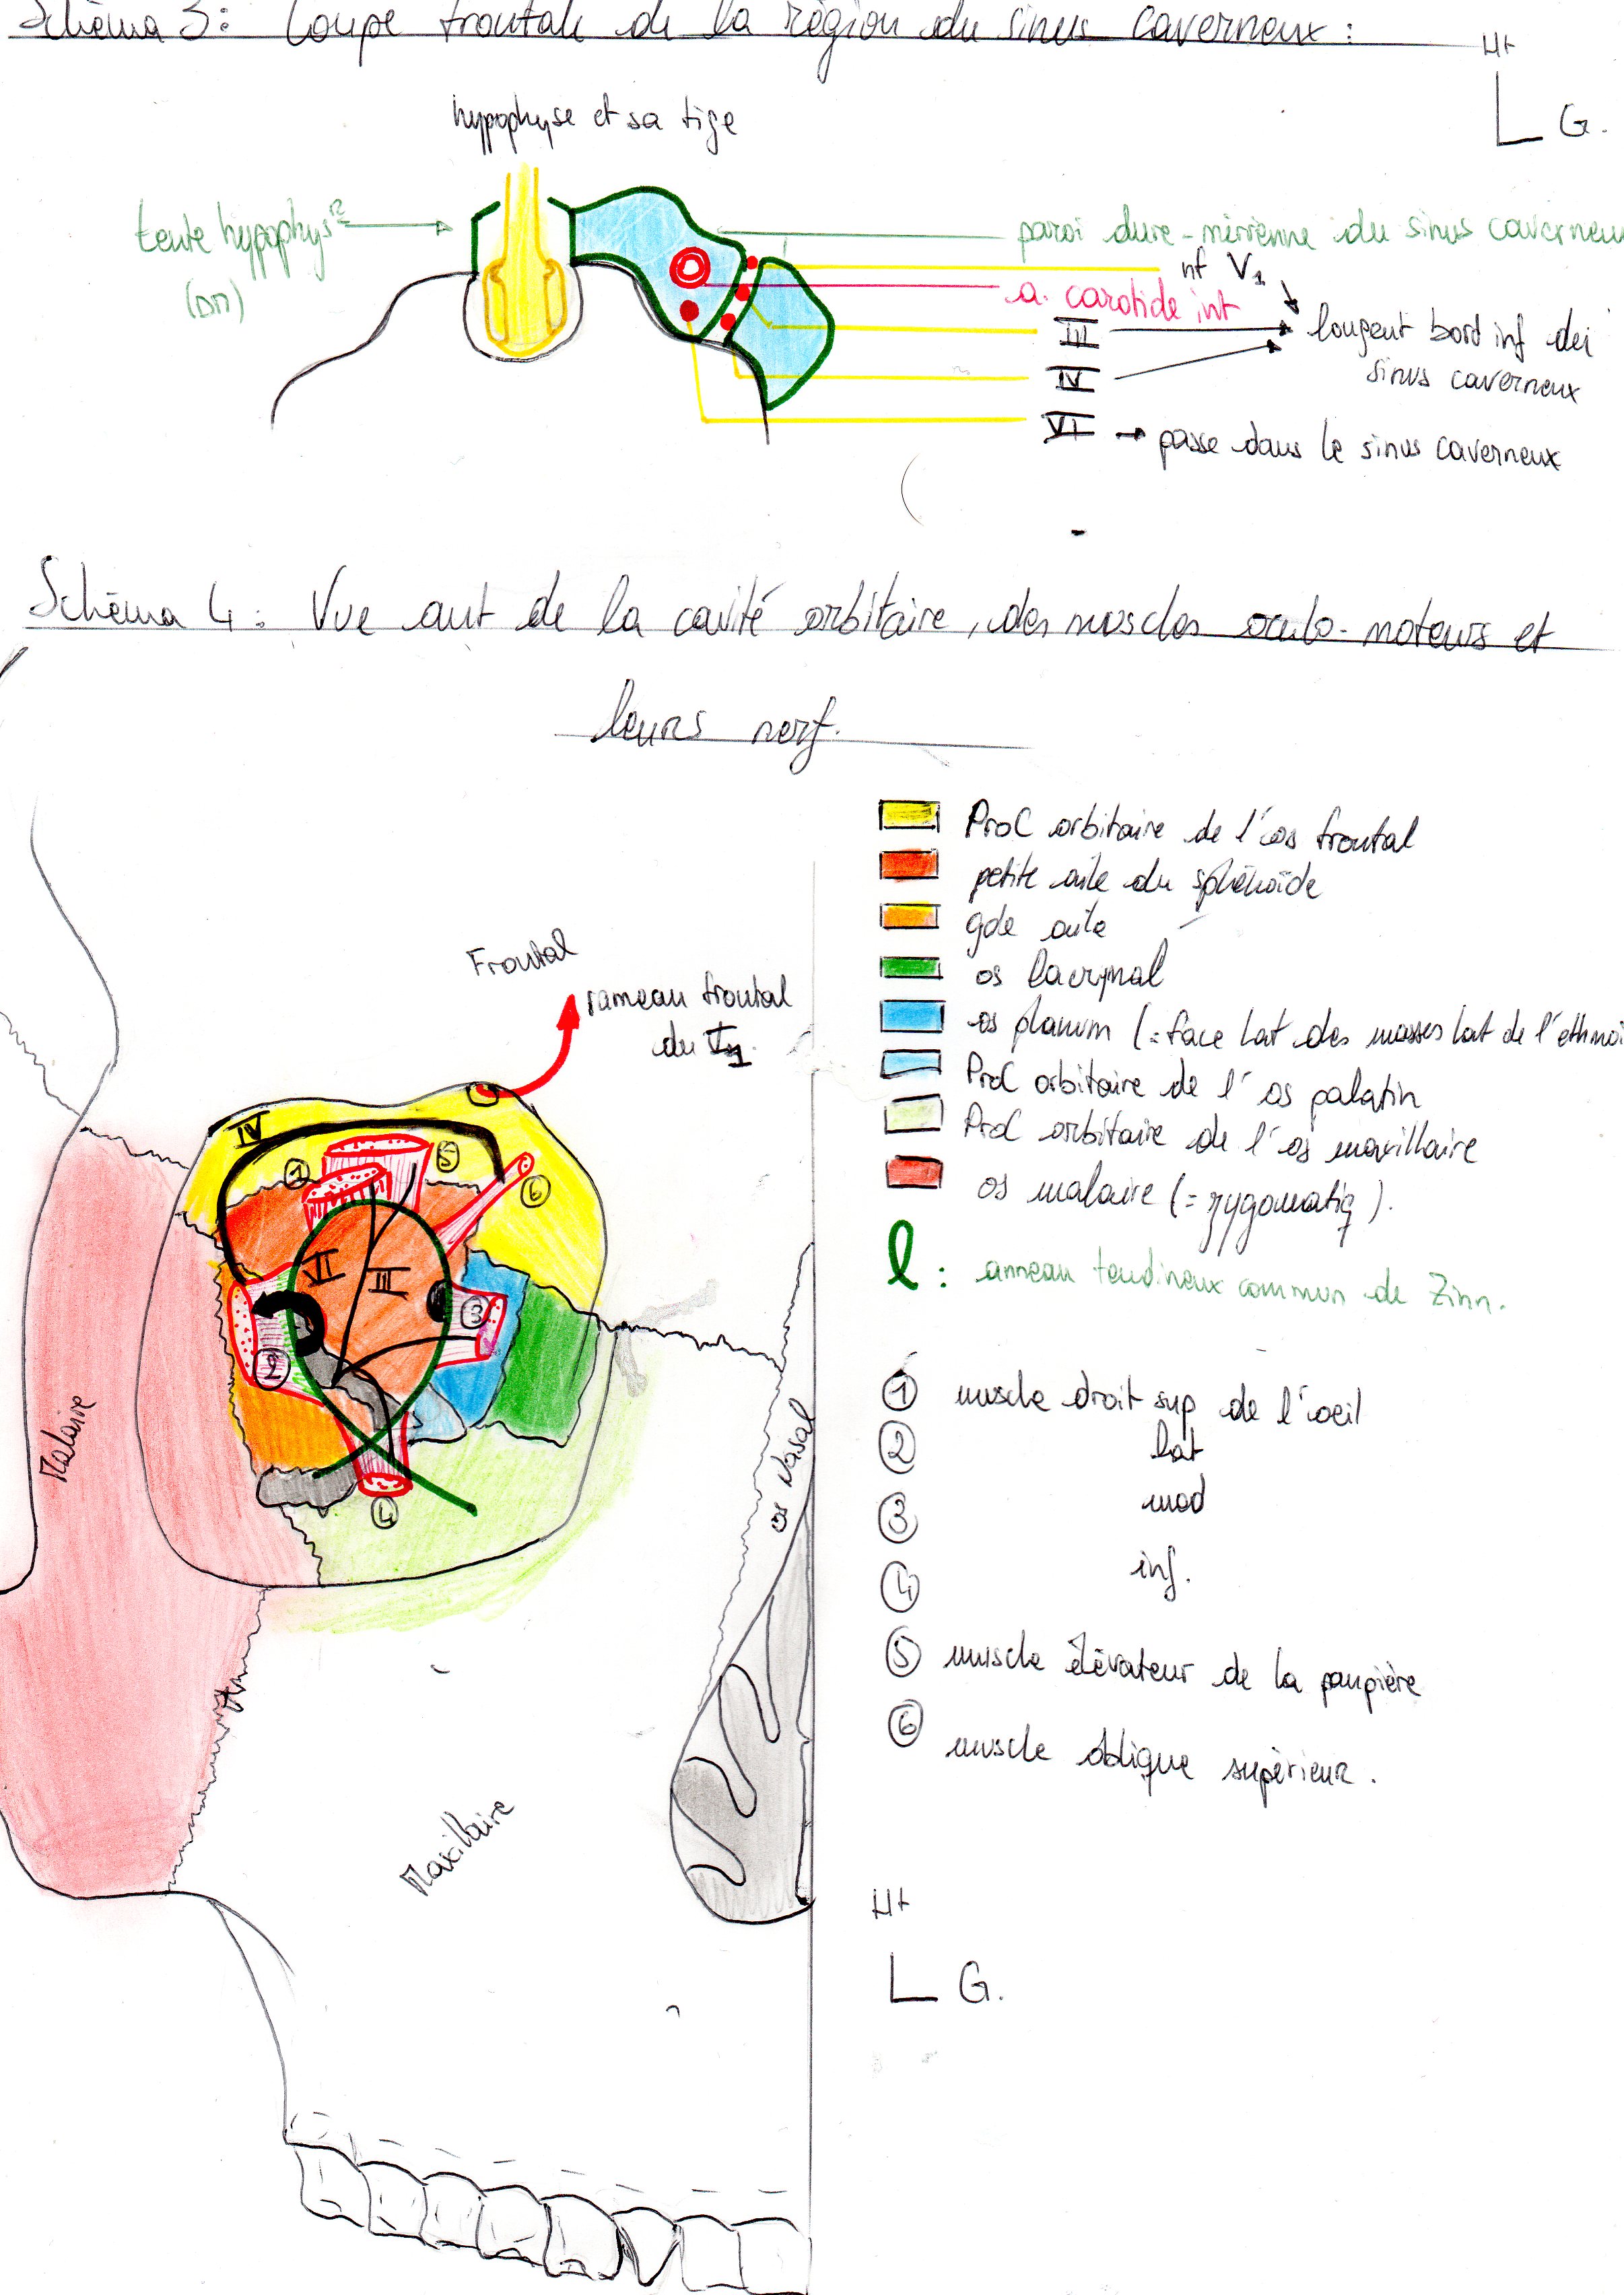 Schéma 3: Coupe frontale de la région du sinus caverneux :
Ht
G.
hypophyse et sa tige
tente hypophysre
(DM)
paroi dure-mérienne du sinus caverneux
nf V1
a. carotide int
III
longent bord inf des
sinus caverneux
IV
VI → passe dans le sinus caverneux
Schéma 4: Vue ant de la cavité orbitaire, des muscles oculo-moteurs et
leurs nerf.
Frontal
rameau frontal
du V1
IV
1
5
6
VI
III
3
2
4
Malaire
os Nasal
Maxillaire
ProC orbitaire de l'os frontal
petite aile du sphénoïde
gde aile
os lacrymal
os planum (= face lat des masses lat de l'ethmoï
ProC orbitaire de l'os palatin
ProC orbitaire de l'os maxillaire
os malaire (= zygomatiq).
: anneau tendineux commun de Zinn.
1 muscle droit sup de l'oeil
2 lat
3 med
4 inf.
5 muscle élévateur de la paupière
6 muscle oblique supérieur.
Ht
G.